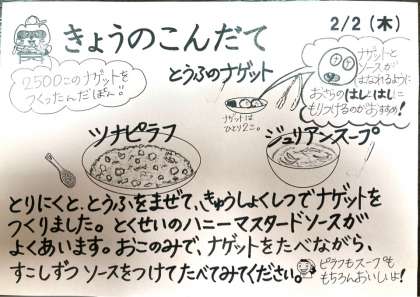 きょうのこんだて
2/2(木)
2500このナゲットを
つくったんだぽん!!
とうふのナゲット
ナゲットと
ソースが
はなれるように
おさらのはしとはしに
もりつけるのがおすすめ!
ナゲットは
ひとり2こ。
ツナピラフ
ジュリアンスープ
とりにくと、とうふをまぜて、きゅうしょくしつでナゲットを
つくりました。とくせいのハニーマスタードソースが
よくあいます。おこのみで、ナゲットをたべながら、
すこしずつソースをつけてたべてみてください。
ピラフもスープも
もちろんおいしいよ!